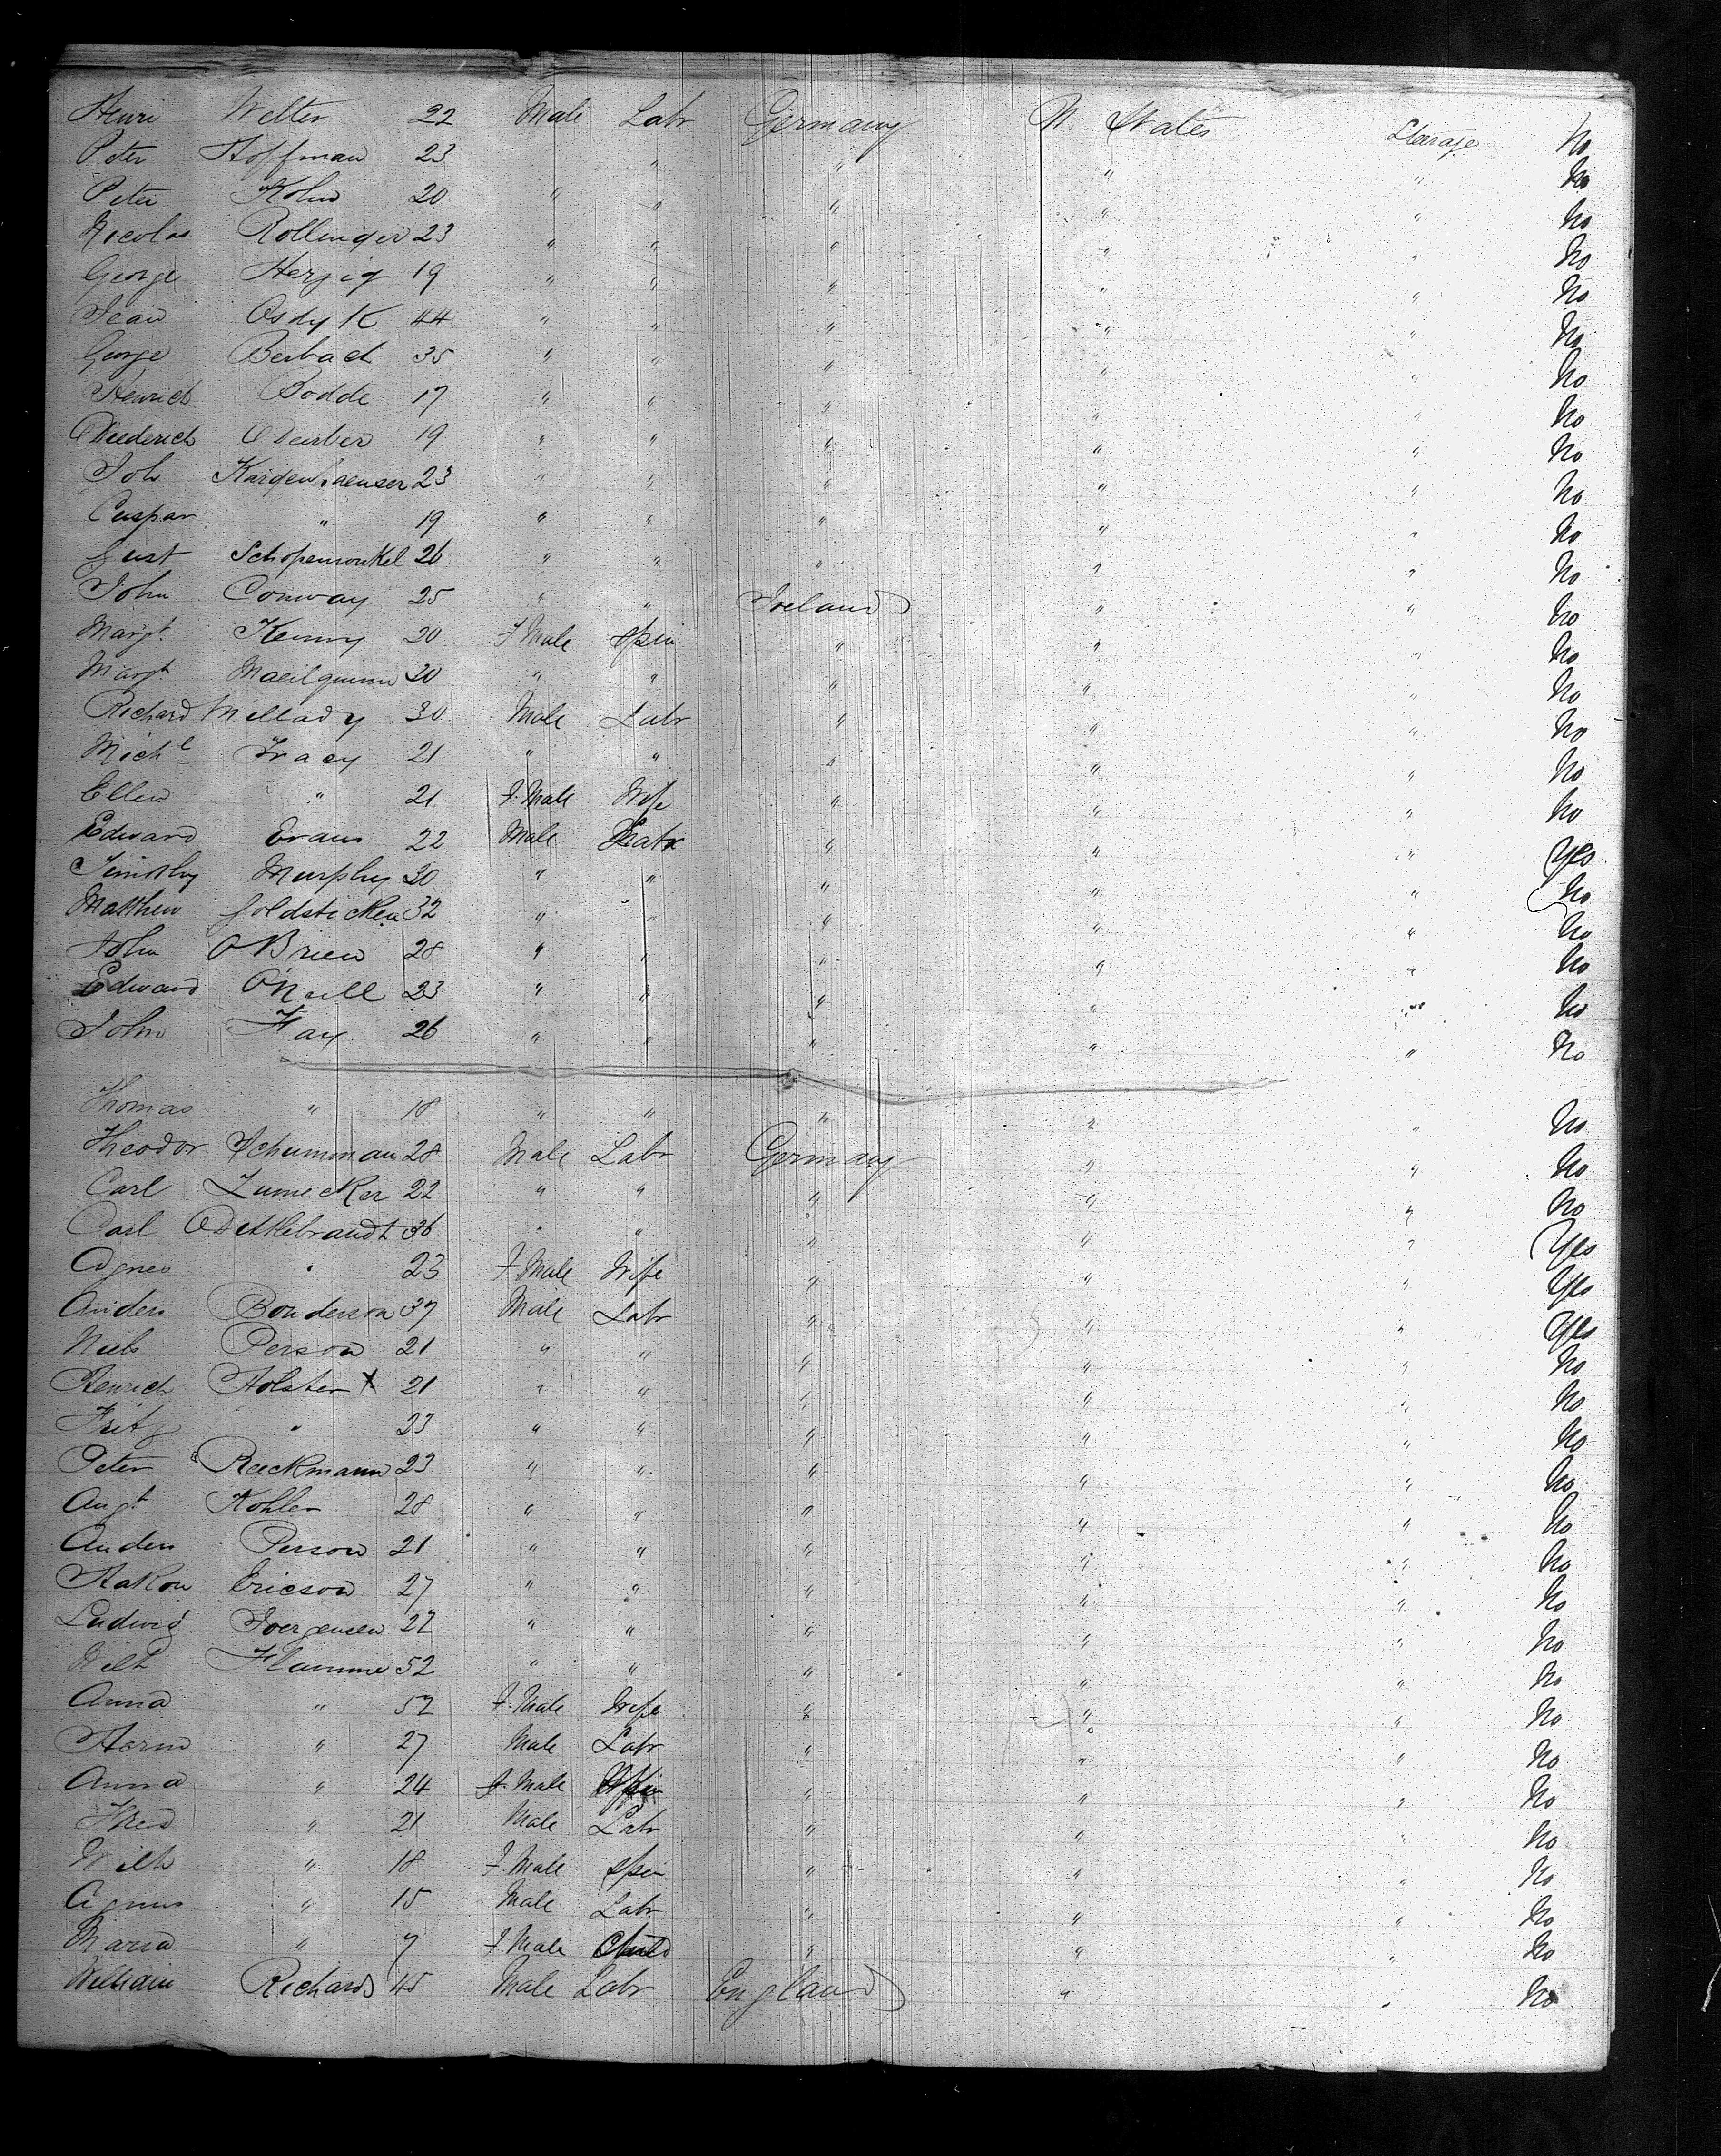 Henri Welter 22 Male Labr Germany U. States Steerage No
Peter Hoffman 23 " " " " No
Peter Kohn 20 " " " " " No
Nicolas Rollinger 23 " " " " " No
George Herzig 19 " " " " " No
Jean Osdyk 44 " " " " " No
George Berbach 35 " " " " " No
Henrich Bodde 17 " " " " " No
Diederich 19 " " " " " No
Joh 23 " " " " " No
Caspar " 19 " " " " " No
Gust 26 " " " " " No
John Conway 25 " " Ireland " " No
Margt. Kenny 20 F Male Spin " " " No
Margt. 20 " " " " " No
Richard Mellady 30 Male Labr " " " No
Michl Tracy 21 " " " " " No
Ellen " 21 F. Male Wife " " " No
Edward Evans 22 Male " " " Yes
Timothy Murphy 30 " " " " " No
Matthew 32 " " " " " No
John OBrien 28 " " " " " No
Edward O'Neill 23 " " " " " No
John Fay 26 " " " " " No
Thomas " 18 " " " " " No
Theodor Schumman 28 Male Labr Germany " " No
Carl Zumecker 22 " " " " " No
Carl 36 " " " " " Yes
Agnes " 23 F. Male Wife " " " Yes
Anders Bonderson 37 Male Labr " " " Yes
Neels Person 21 " " " " " No
Henrich Holster X 21 " " " " " No
Fritz " 23 " " " " " No
Peter Reeckmann 23 " " " " " No
Augt Kohler 28 " " " " " No
Anders Person 21 " " " " " No
Hakon Ericson 27 " " " " " No
Ludwig Joergensen 22 " " " " " No
Wilh Flamme 52 " " " " " No
Anna " 52 F. Male Wife " " " No
Harm " 27 Male Labr " " " No
Anna " 24 F. Male Spin " " " No
" 21 Male Labr " " " No
Wilh " 18 F. Male Spin " " " No
" 15 Male Labr " " " No
Maria " 7 F. Male Child " " " No
William Richards 45 Male Labr England " " No